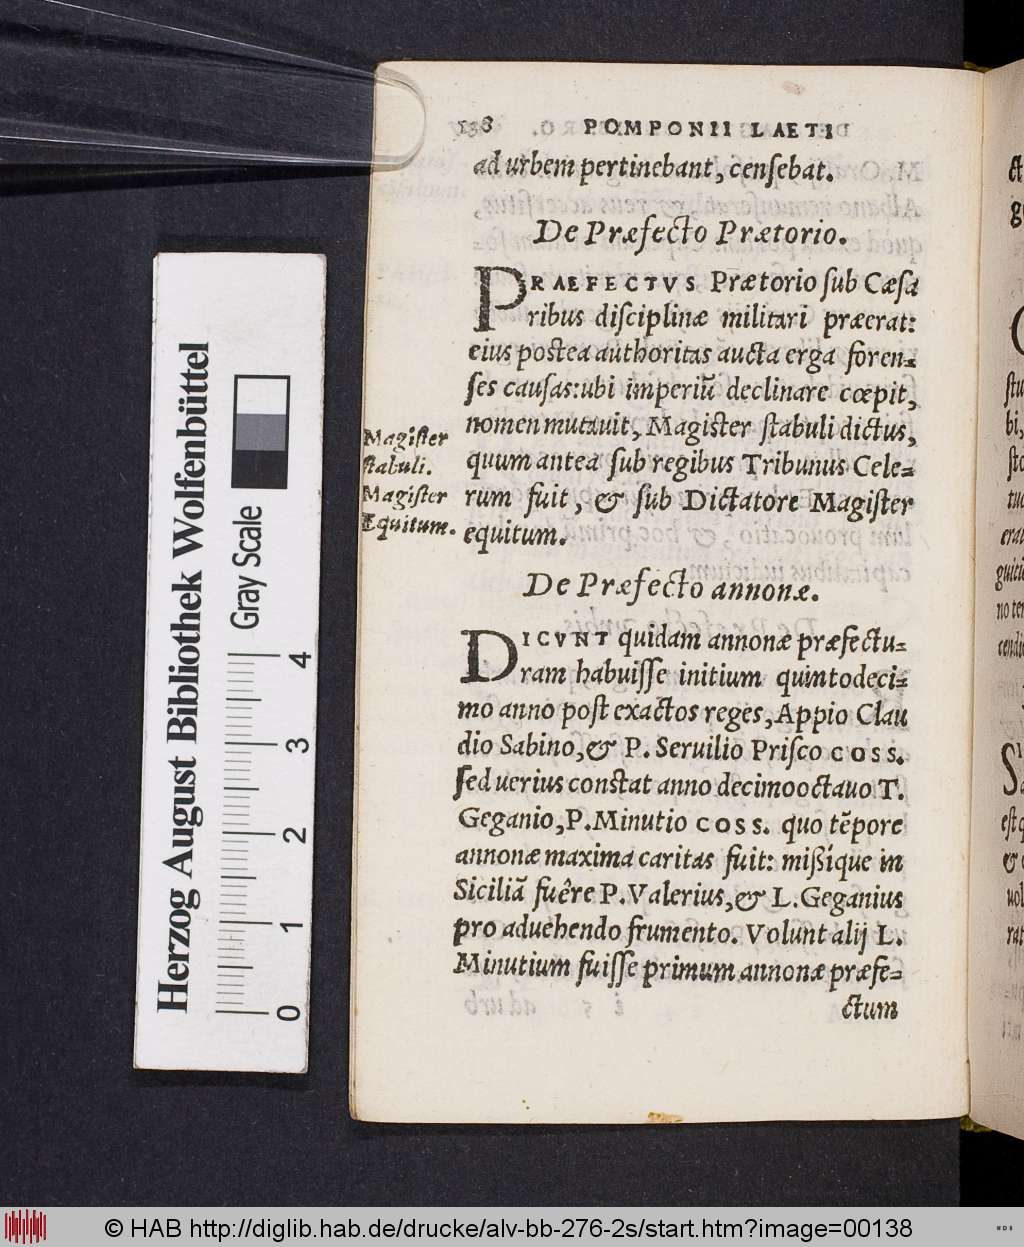 138 POMPONII LAETI
ad urbem pertinebant, censebat.
De Præfecto Prætorio.
PRAEFECTVS Prætorio sub Cæsa
ribus disciplinæ militari præerat:
eius postea authoritas aucta erga foren-
ses causas: ubi imperiũ declinare cœpit,
nomen mutauit, Magister stabuli dictus,
quum antea sub regibus Tribunus Cele-
rum fuit, & sub Dictatore Magister
equitum.
Magister
stabuli.
Magister
Equitum.
De Præfecto annonæ.
DICVNT quidam annonæ præfectu-
ram habuisse initium quintodeci-
mo anno post exactos reges, Appio Clau
dio Sabino, & P. Seruilio Prisco COSS.
sed uerius constat anno decimooctauo T.
Geganio, P. Minutio COSS. quo tẽpore
annonæ maxima caritas fuit: mißíque in
Siciliã fuêre P. Valerius, & L. Geganius
pro aduehendo frumento. Volunt alij L.
Minutium fuisse primum annonæ præfe-
ctum
Herzog August Bibliothek Wolfenbüttel
Gray Scale
0 1 2 3 4
© HAB http://diglib.hab.de/drucke/alv-bb-276-2s/start.htm?image=00138